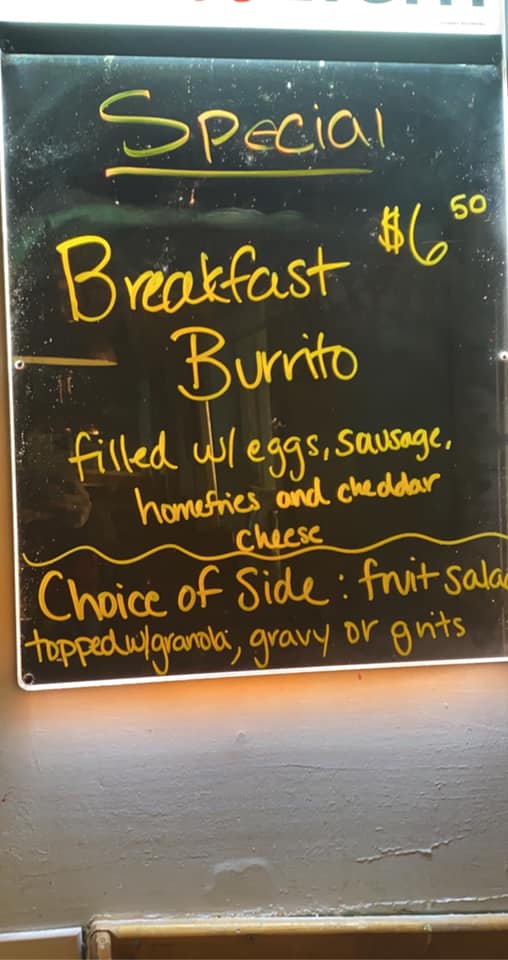 Special
$6 50
Breakfast
Burrito
filled w/ eggs, sausage,
homefries and cheddar
cheese
Choice of Side : fruit sala
topped w/granola, gravy or grits